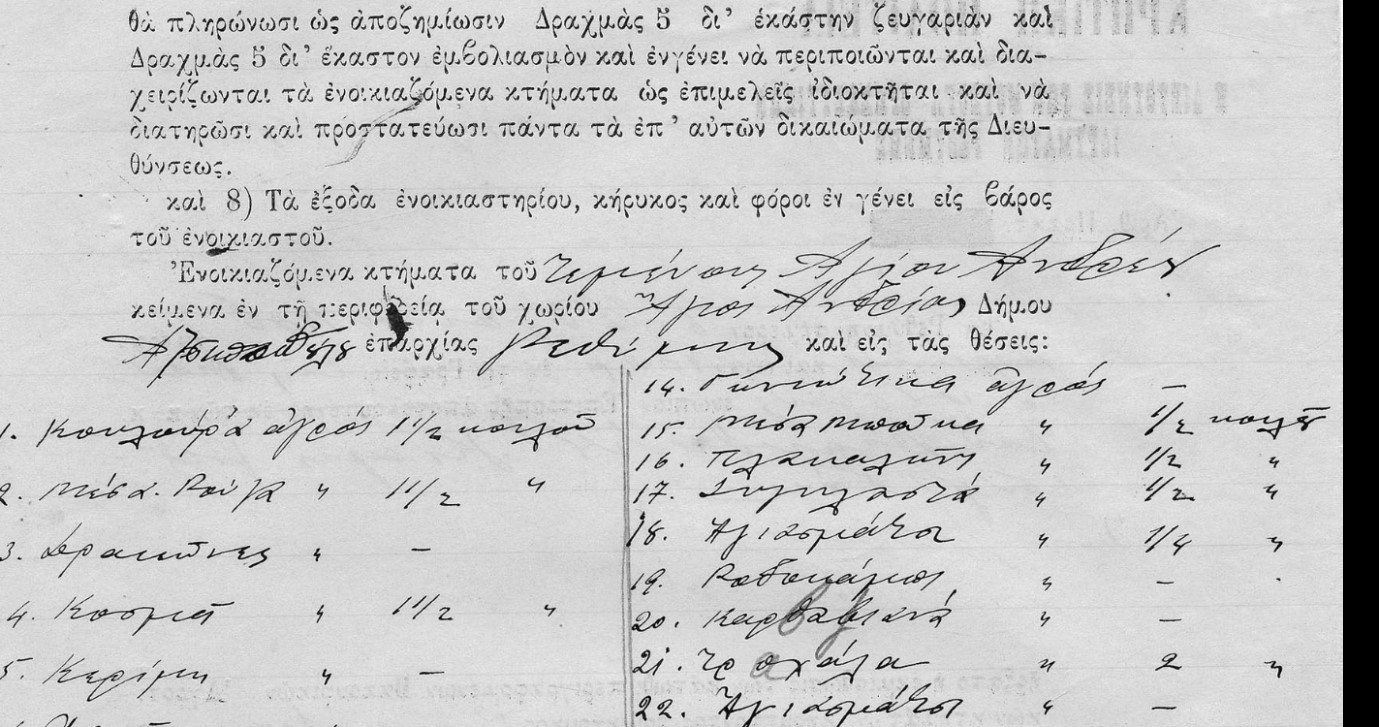 θὰ πληρώνωσι ὡς ἀποζημίωσιν Δραχμὰς 5 δι’ ἑκάστην ζευγαριὰν καὶ
Δραχμὰς 5 δι’ ἕκαστον ἐμβολιασμὸν καὶ ἐνγένει νὰ περιποιῶνται καὶ δια-
χειρίζωνται τὰ ἐνοικιαζόμενα κτήματα ὡς ἐπιμελεῖς ἰδιοκτῆται καὶ νὰ
διατηρῶσι καὶ προστατεύωσι πάντα τὰ ἐπ’ αὐτῶν δικαιώματα τῆς Διευ-
θύνσεως.
καὶ 8) Τὰ ἐξοδα ἐνοικιαστηρίου, κήρυκος καὶ φόροι ἐν γένει εἰς βάρος
τοῦ ἐνοικιαστοῦ.
Ἐνοικιαζόμενα κτήματα τοῦ Ἁγίου Ἀνδρέου
κείμενα ἐν τῇ περιφερείᾳ τοῦ χωρίου Ἅγιος Ἀνδρέας Δήμου
ἐπαρχίας Ρεθύμνης καὶ εἰς τὰς θέσεις:
1. Κουλούρα ἀγρός 1 1/2 κοιλοῦ
2. Μέσα Ρούγα " 1 1/2 "
3. "  —
4. Κοσμᾶ " 1 1/2 "
5. Κερίμη " —
14. ἀγρός —
15. " 1/2
16. " 1/2 "
17. " 1/2 "
18. Ἁγιασμάτσι " 1/4 "
19. Ροδοκάμπος " —
20. " —
21. Τροχάλα " 2 "
22. Ἁγιασμάτσι " —